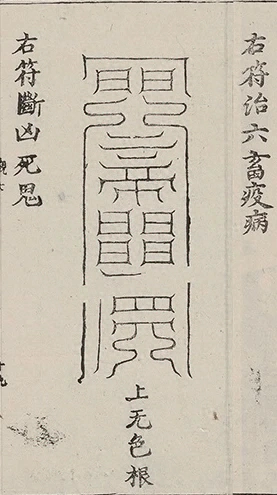 右符治六畜疫病
上无色根
右符斷凶死鬼